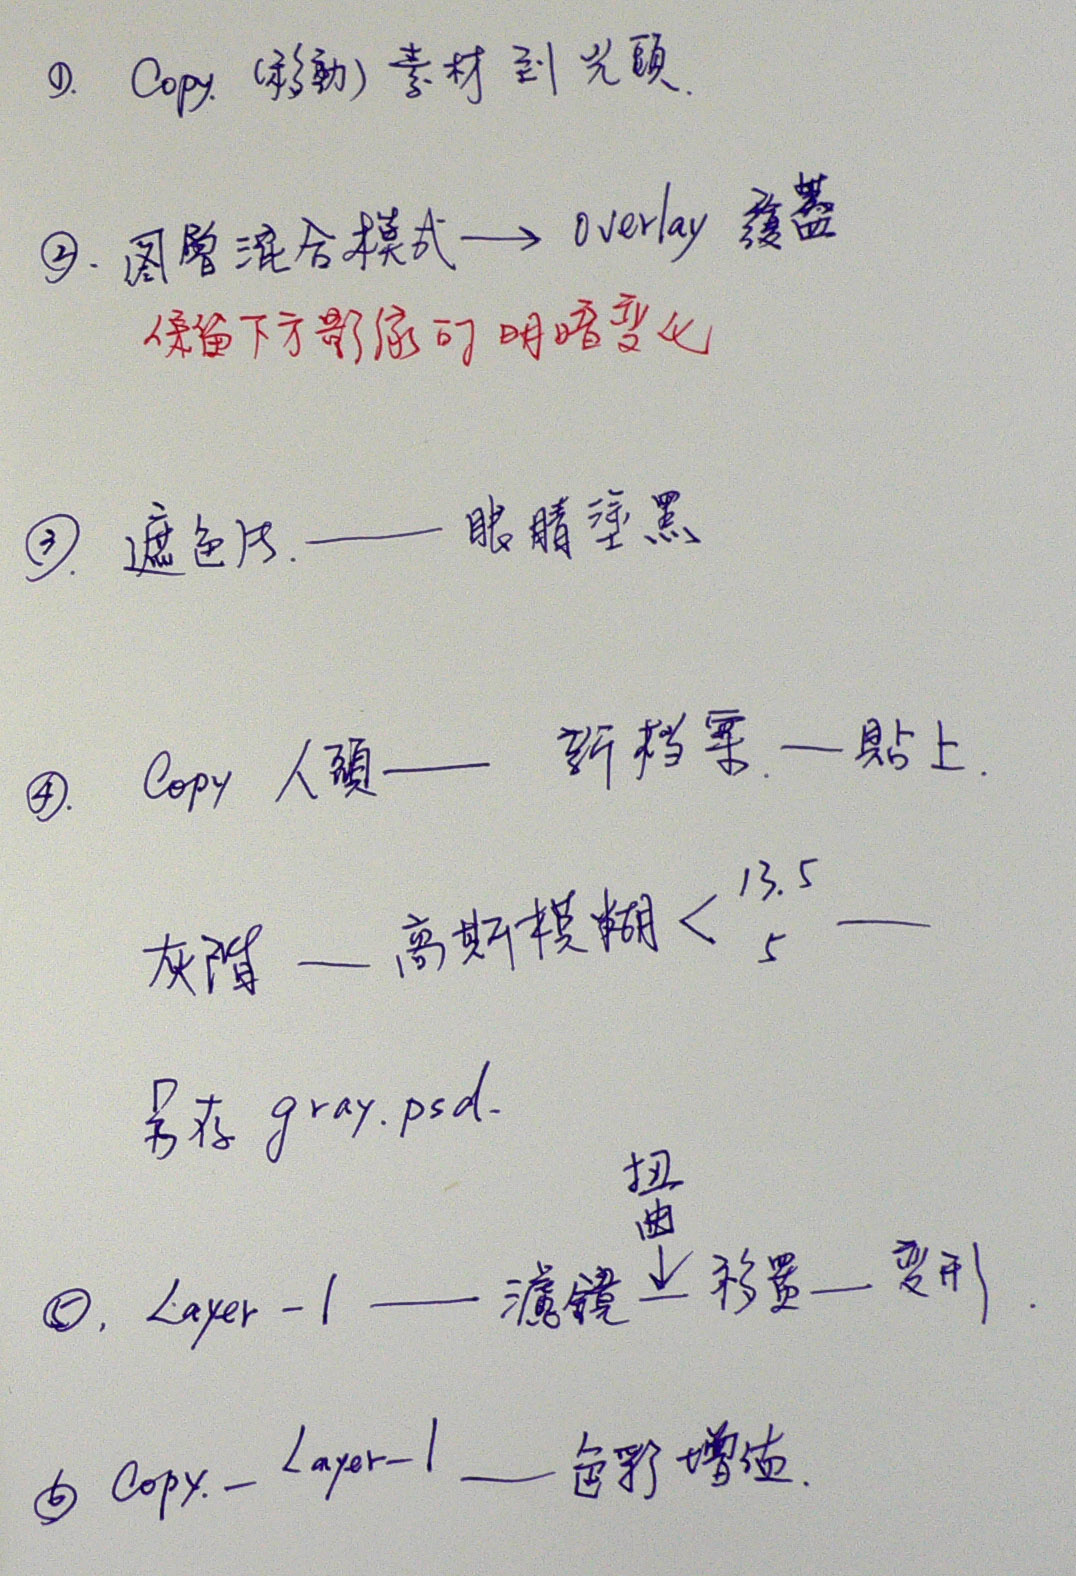 ①. Copy. (移動) 素材到光頭.
②. 图層混合模式→ overlay 覆蓋
保留下方影像的明暗变化
③. 遮色片. —— 眼睛塗黑
④. Copy 人頭—— 新档案. —貼上.
灰階 — 高斯模糊 < 13.5 5 —
另存 gray.psd.
扭曲
↓
⑤. Layer-1 —— 濾鏡 — 移置— 变形.
⑥ Copy. - Layer-1 —— 色彩增值.